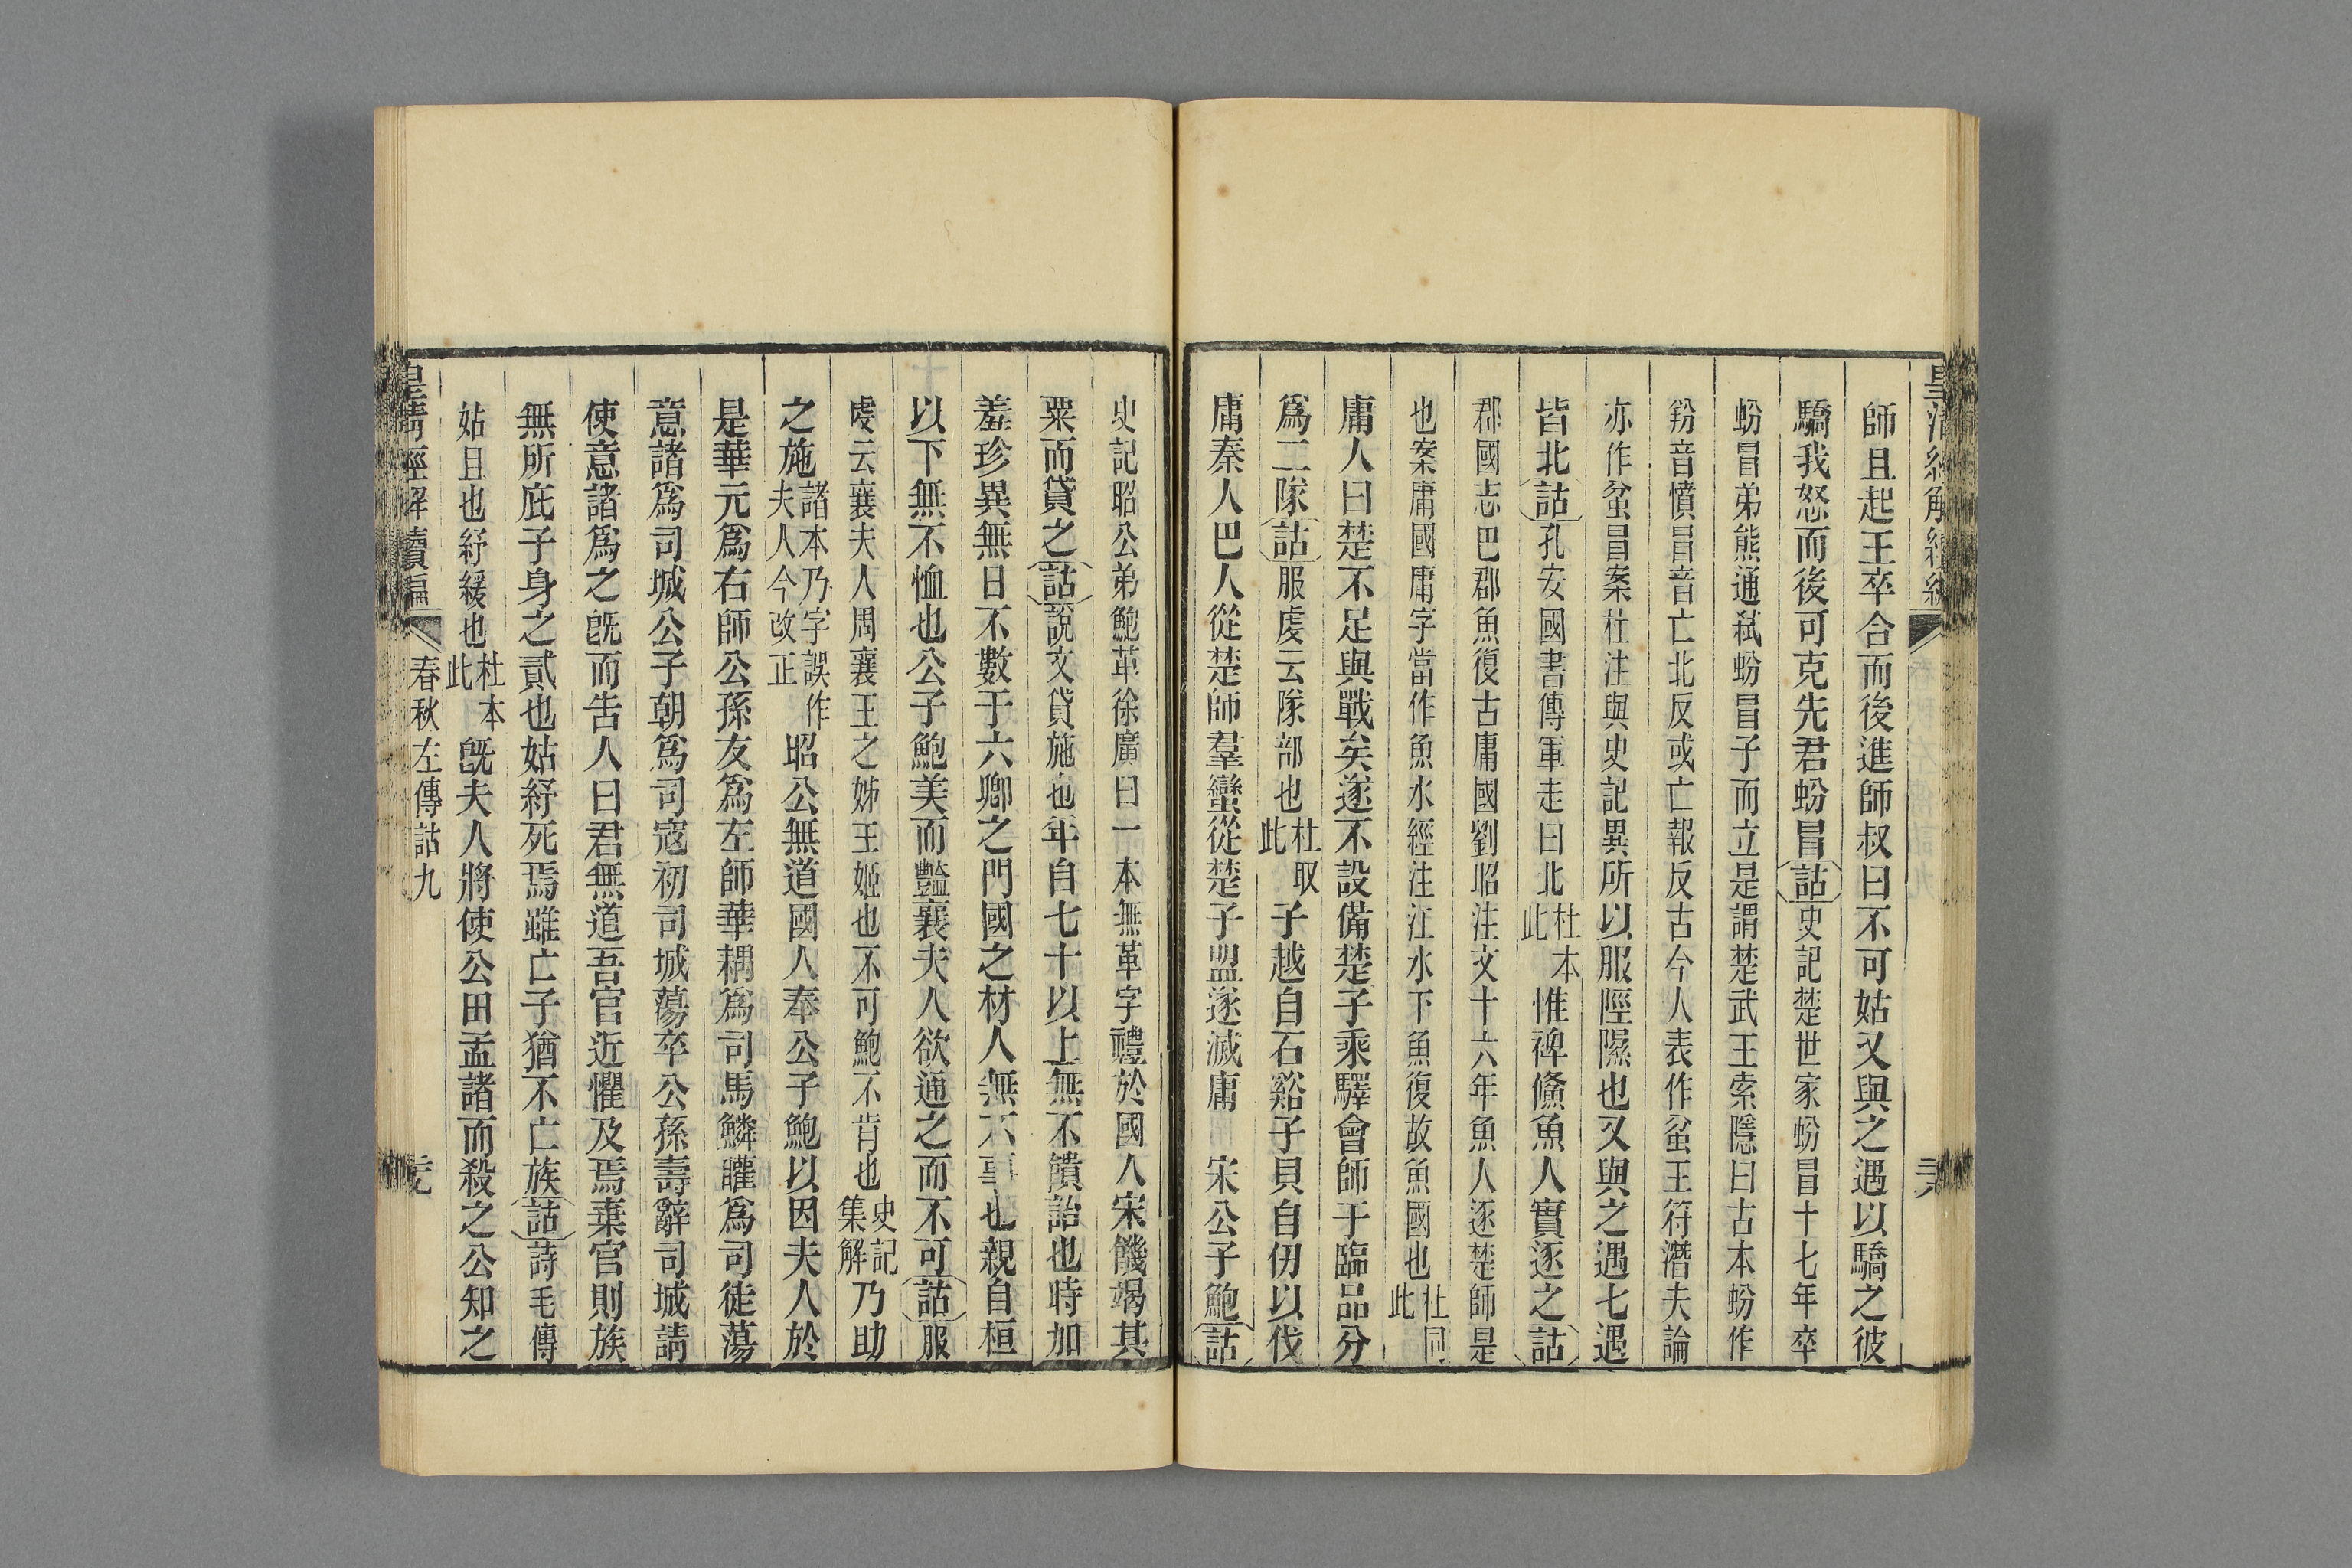 皇清經解續編
師且起王卒合而後進師叔曰不可姑又與之遇以驕之彼
驕我怒而後可克先君蚡冒詁史記楚世家蚡冒十七年卒
蚡冒弟熊通弒蚡冒子而立是謂楚武王索隱曰古本蚡作
羒音憤冒音亡北反或亡報反古今人表作蚠王符潛夫論
亦作蚠冒案杜注與史記異所以服陘隰也又與之遇七遇
皆北詁孔安國書傳軍走曰北杜本此惟裨鯈魚人實逐之詁
郡國志巴郡魚復古庸國劉昭注文十六年魚人逐楚師是
也案庸國庸字當作魚水經注江水下魚復故魚國也杜同此
庸人曰楚不足與戰矣遂不設備楚子乘驛會師于臨品分
爲二隊詁服虔云隊部也杜取此子越自石谿子貝自仞以伐
庸秦人巴人從楚師羣蠻從楚子盟遂滅庸 宋公子鮑詁
史記昭公弟鮑革徐廣曰一本無革字禮於國人宋饑竭其
粟而貸之詁說文貸施也年自七十以上無不饋詒也時加
羞珍異無日不數于六卿之門國之材人無不事也親自桓
以下無不恤也公子鮑美而豔襄夫人欲通之而不可詁服
虔云襄夫人周襄王之姊王姬也不可鮑不肯也史記集解乃助
之施諸本乃字誤作夫人今改正昭公無道國人奉公子鮑以因夫人於
是華元爲右師公孫友爲左師華耦爲司馬鱗矔爲司徒蕩
意諸爲司城公子朝爲司寇初司城蕩卒公孫壽辭司城請
使意諸爲之旣而告人曰君無道吾官近懼及焉棄官則族
無所庇子身之貳也姑紓死焉雖亡子猶不亡族詁詩毛傳
姑且也紓緩也杜本此旣夫人將使公田孟諸而殺之公知之
皇清經解續編 春秋左傳詁九